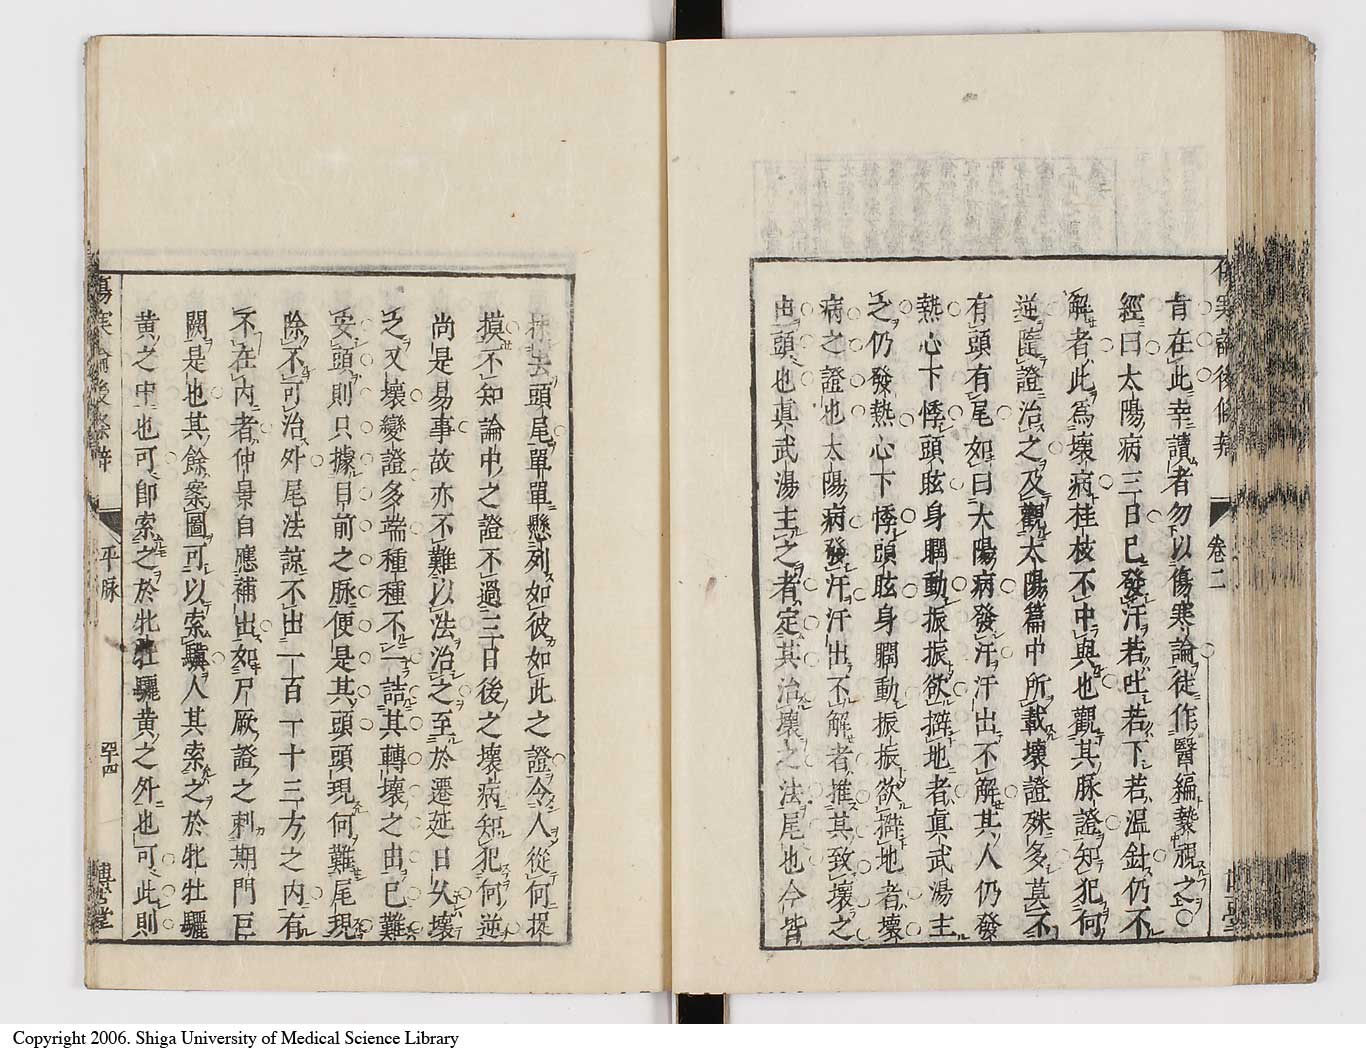 傷寒論後條辨
卷二
肯在此幸讀者勿以傷寒論徒作醫編褻視之〇
經曰太陽病三日已發汗若吐若下若温針仍不
解者此爲壞病桂枝不中與也觀其脉證知犯何
逆隨證治之及觀太陽篇中所載壞證殊多莫不
有頭有尾如曰太陽病發汗汗出不解其人仍發
熱心下悸頭眩身瞤動振振欲擗地者真武湯主
之仍發熱心下悸頭眩身瞤動振振欲擗地者壞
病之證也太陽病發汗汗出不解者推其致壞之
由頭也真武湯主之者定其治壞之法尾也今皆
抹去頭尾單單懸列如彼如此之證令人從何捉
摸不知論中之證不過三日後之壞病知犯何逆
尚是易事故亦不難以法治之至於遷延日久壞
之又壞變證多端種種不一詰其轉壞之由已難
妄頭則只據目前之脉便是其頭頭現何難尾現
除不可治外尾法諒不出一百一十三方之内有
不在内者仲景自應補出如尸厥證之刺期門巨
闕是也其餘案圖可以索驥人其索之於牝牡驪
黃之中也可即索之於牝牡驪黃之外也可此則
傷寒論後條辨
平脉
四十四
博古堂
Copyright 2006. Shiga University of Medical Science Library